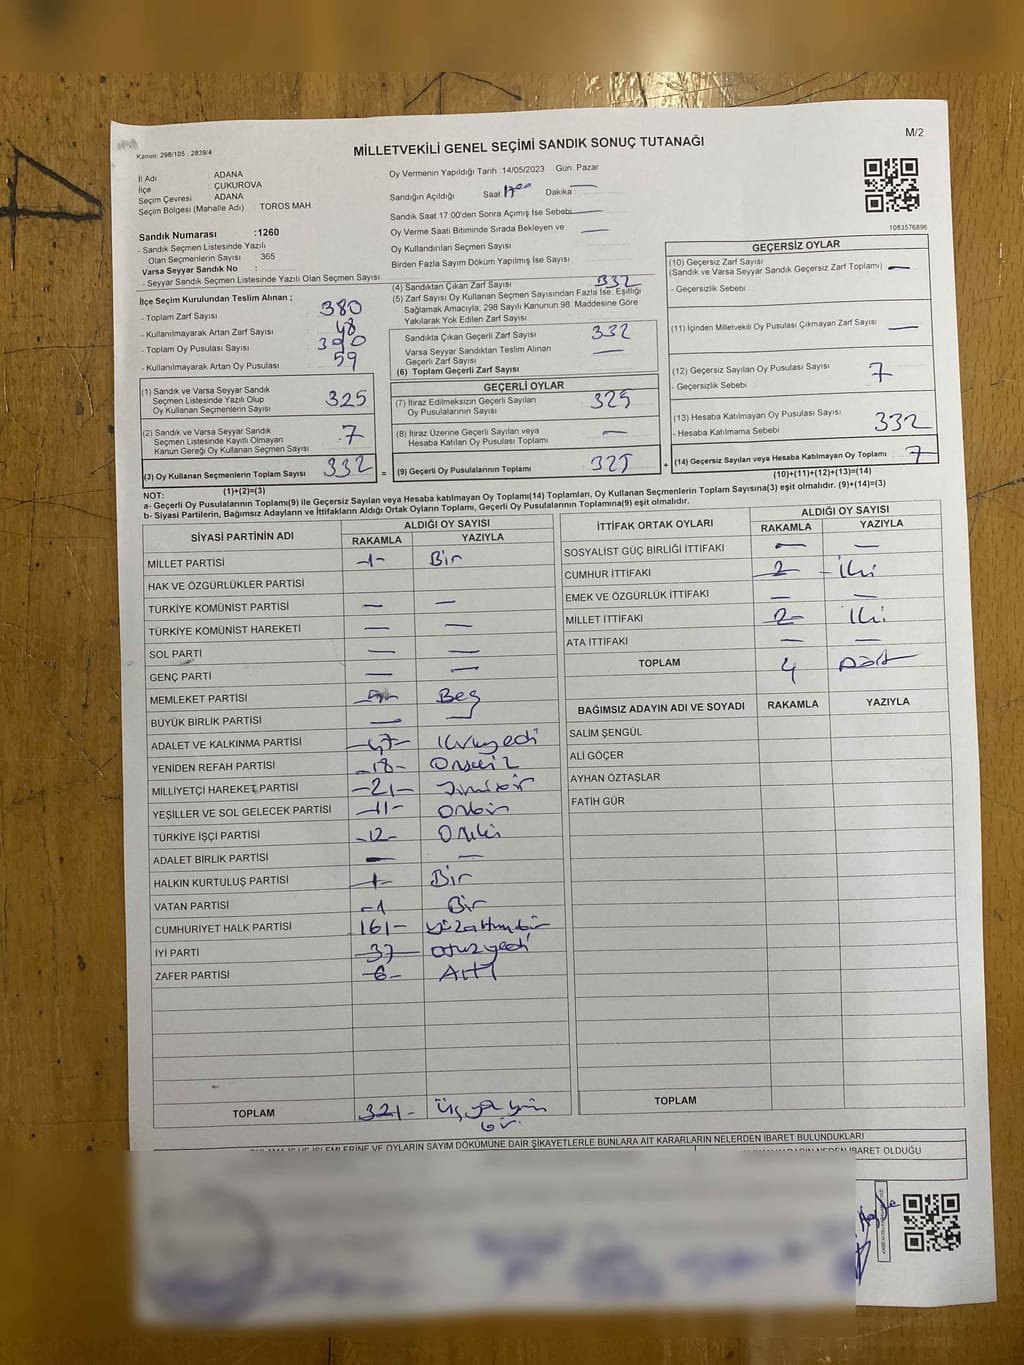 M/2
Kanun: 298/105 , 2839/4
MİLLETVEKİLİ GENEL SEÇİMİ SANDIK SONUÇ TUTANAĞI
İl Adı : ADANA
İlçe : ÇUKUROVA
Seçim Çevresi : ADANA
Seçim Bölgesi (Mahalle Adı) : TOROS MAH
Oy Vermenin Yapıldığı Tarih : 14/05/2023 Gün: Pazar
Sandığın Açıldığı Saat 17:00 Dakika —
Sandık Saat 17.00'den Sonra Açımış İse Sebebi —
Oy Verme Saati Bitiminde Sırada Bekleyen ve —
Oy Kullandırılan Seçmen Sayısı
Birden Fazla Sayım Döküm Yapılmış İse Sayısı
1083576896
Sandık Numarası :1260
- Sandık Seçmen Listesinde Yazılı
Olan Seçmenlerin Sayısı : 365
Varsa Seyyar Sandık No :
- Seyyar Sandık Seçmen Listesinde Yazılı Olan Seçmen Sayısı:
İlçe Seçim Kurulundan Teslim Alınan ;
- Toplam Zarf Sayısı : 380
- Kullanılmayarak Artan Zarf Sayısı : 48
- Toplam Oy Pusulası Sayısı : 390
- Kullanılmayarak Artan Oy Pusulası : 59
(1) Sandık ve Varsa Seyyar Sandık
Seçmen Listesinde Yazılı Olup
Oy Kullanan Seçmenlerin Sayısı 325
(2) Sandık ve Varsa Seyyar Sandık
Seçmen Listesinde Kayıtlı Olmayan
Kanun Gereği Oy Kullanan Seçmen Sayısı 7
(3) Oy Kullanan Seçmenlerin Toplam Sayısı 332
(1)+(2)=(3)
(4) Sandıktan Çıkan Zarf Sayısı 332
(5) Zarf Sayısı Oy Kullanan Seçmen Sayısından Fazla İse, Eşitliği
Sağlamak Amacıyla, 298 Sayılı Kanunun 98. Maddesine Göre
Yakılarak Yok Edilen Zarf Sayısı
Sandıkta Çıkan Geçerli Zarf Sayısı 332
Varsa Seyyar Sandıktan Teslim Alınan
Geçerli Zarf Sayısı —
(6) Toplam Geçerli Zarf Sayısı
GEÇERLİ OYLAR
(7) İtiraz Edilmeksizin Geçerli Sayılan
Oy Pusulalarının Sayısı 325
(8) İtiraz Üzerine Geçerli Sayılan veya
Hesaba Katılan Oy Pusulası Toplamı —
= (9) Geçerli Oy Pusulalarının Toplamı 325 +
GEÇERSİZ OYLAR
(10) Geçersiz Zarf Sayısı
(Sandık ve Varsa Seyyar Sandık Geçersiz Zarf Toplamı) —
- Geçersizlik Sebebi
(11) İçinden Milletvekili Oy Pusulası Çıkmayan Zarf Sayısı —
(12) Geçersiz Sayılan Oy Pusulası Sayısı 7
- Geçersizlik Sebebi :
(13) Hesaba Katılmayan Oy Pusulası Sayısı 332
- Hesaba Katılmama Sebebi :
(14) Geçersiz Sayılan veya Hesaba Katılmayan Oy Toplamı 7
(10)+(11)+(12)+(13)=(14)
NOT:
a- Geçerli Oy Pusulalarının Toplamı(9) ile Geçersiz Sayılan veya Hesaba katılmayan Oy Toplamı(14) Toplamları, Oy Kullanan Seçmenlerin Toplam Sayısına(3) eşit olmalıdır. (9)+(14)=(3)
b- Siyasi Partilerin, Bağımsız Adayların ve İttifakların Aldığı Ortak Oyların Toplamı, Geçerli Oy Pusulalarının Toplamına(9) eşit olmalıdır.
SİYASİ PARTİNİN ADI ALDIĞI OY SAYISI
RAKAMLA YAZIYLA
MİLLET PARTİSİ -1- Bir
HAK VE ÖZGÜRLÜKLER PARTİSİ
TÜRKİYE KOMÜNİST PARTİSİ — —
TÜRKİYE KOMÜNİST HAREKETİ — —
SOL PARTİ — —
GENÇ PARTİ — —
MEMLEKET PARTİSİ Beş
BÜYÜK BİRLİK PARTİSİ — —
ADALET VE KALKINMA PARTİSİ -47- kırkyedi
YENİDEN REFAH PARTİSİ -18- Onsekiz
MİLLİYETÇİ HAREKET PARTİSİ -21- Yirmibir
YEŞİLLER VE SOL GELECEK PARTİSİ -11- Onbir
TÜRKİYE İŞÇİ PARTİSİ -12- Oniki
ADALET BİRLİK PARTİSİ — —
HALKIN KURTULUŞ PARTİSİ -1- Bir
VATAN PARTİSİ -1 Bir
CUMHURİYET HALK PARTİSİ 161- yüzaltmışbir
İYİ PARTİ -37- otuzyedi
ZAFER PARTİSİ -6- Altı
TOPLAM 321- Üçyüzyirmi
bir
İTTİFAK ORTAK OYLARI ALDIĞI OY SAYISI
RAKAMLA YAZIYLA
SOSYALİST GÜÇ BİRLİĞİ İTTİFAKI — —
CUMHUR İTTİFAKI 2 - İki
EMEK VE ÖZGÜRLÜK İTTİFAKI — —
MİLLET İTTİFAKI 2- İki
ATA İTTİFAKI — —
TOPLAM 4 Dört
BAĞIMSIZ ADAYIN ADI VE SOYADI RAKAMLA YAZIYLA
SALİM ŞENGÜL
ALİ GÖÇER
AYHAN ÖZTAŞLAR
FATİH GÜR
TOPLAM
İŞLEMLERİNE VE OYLARIN SAYIM DÖKÜMÜNE DAİR ŞİKAYETLERLE BUNLARA AİT KARARLARIN NELERDEN İBARET BULUNDUKLARI
KARARIN NEDEN İBARET OLDUĞU